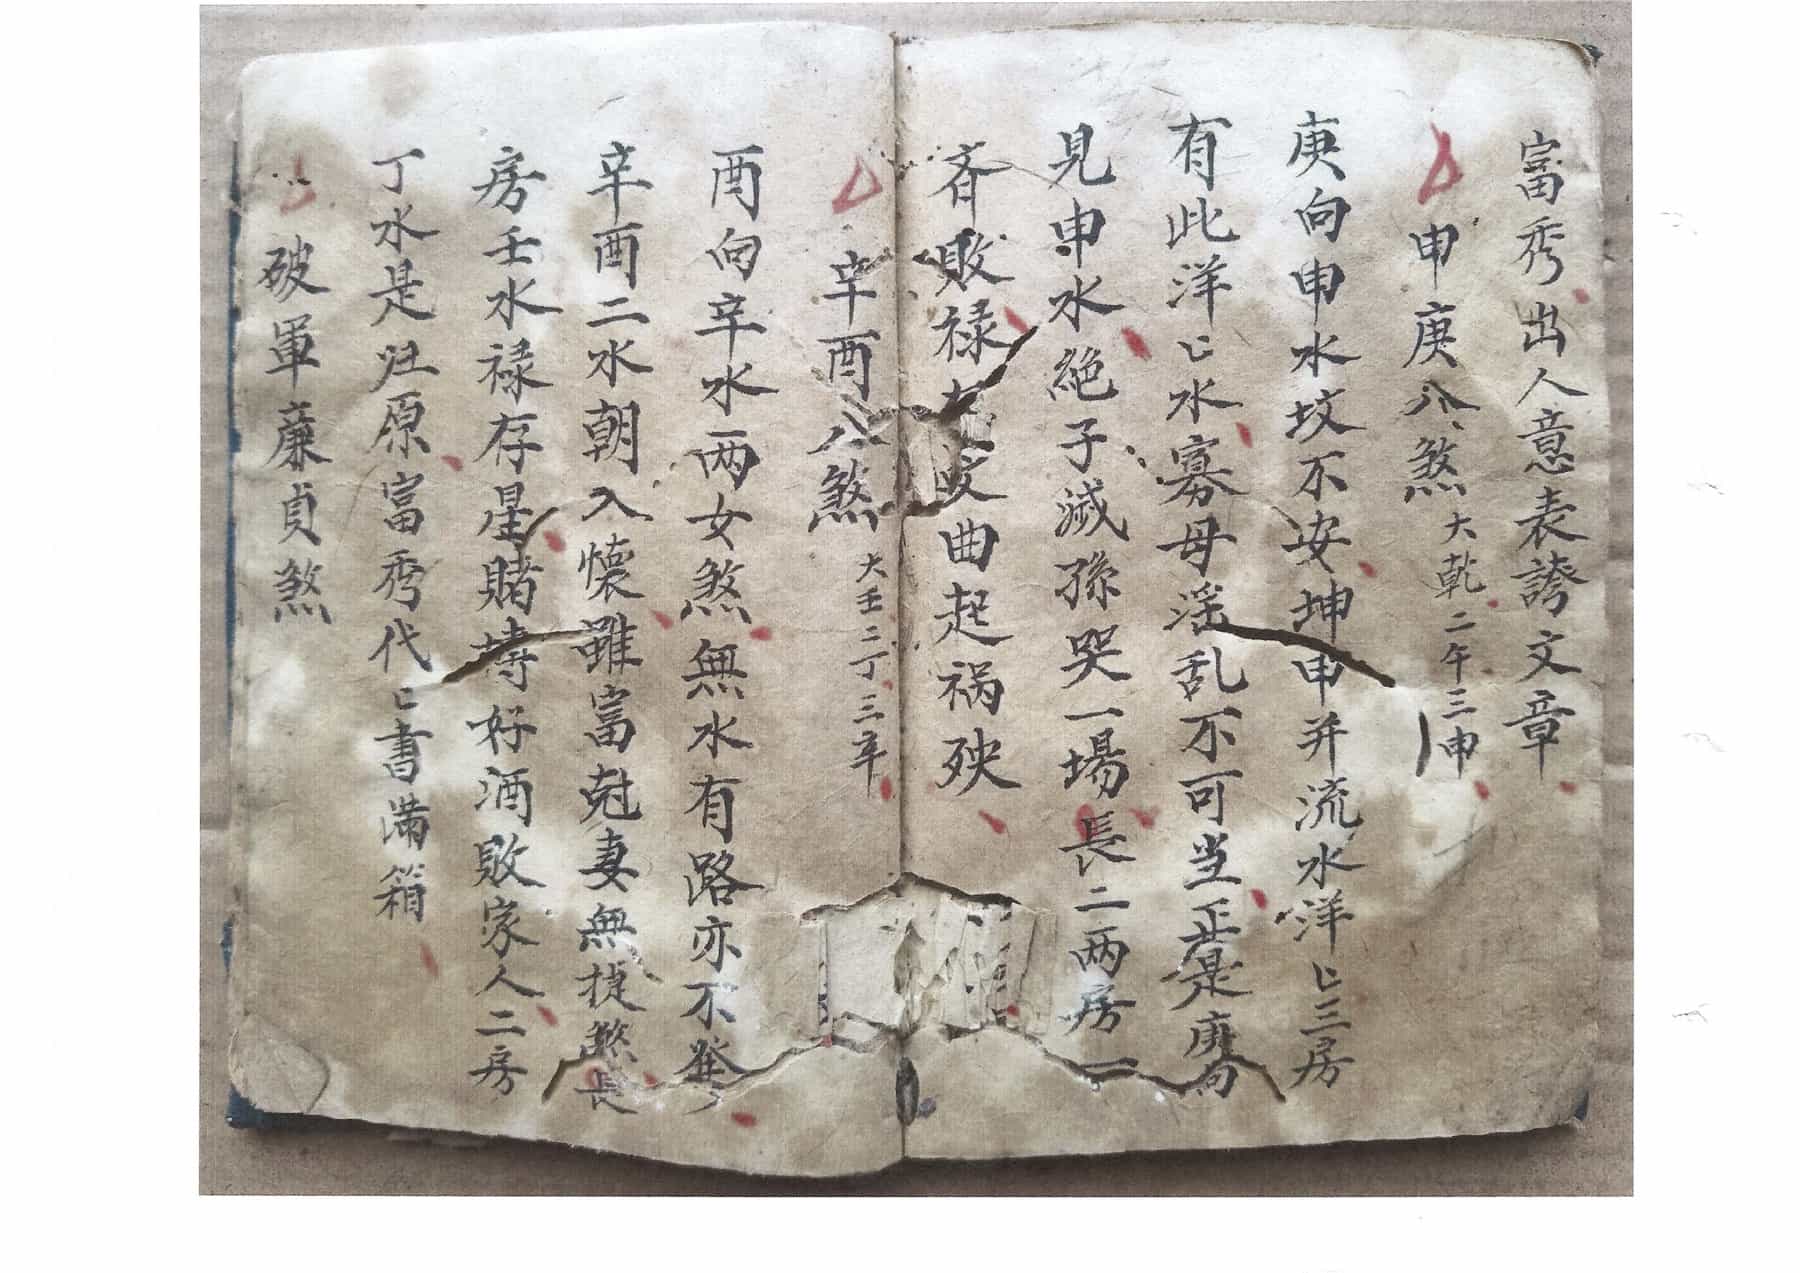 富秀出人意表誇文章
申庚八煞 大乾二午三申
庚向申水坟不安坤申并流水洋匕三房
有此洋匕水寡母淫乱不可当正是庚向
見申水絶子滅孫哭一場長二两房一
斉敗禄存文曲起祸殃
辛酉八煞 大壬二丁三辛
酉向辛水两女煞無水有路亦不發
辛酉二水朝入懷雖富尅妻無捷煞長
房壬水禄存星賭博好酒敗家人二房
丁水是归原富秀代匕書滿箱
破軍廉貞煞